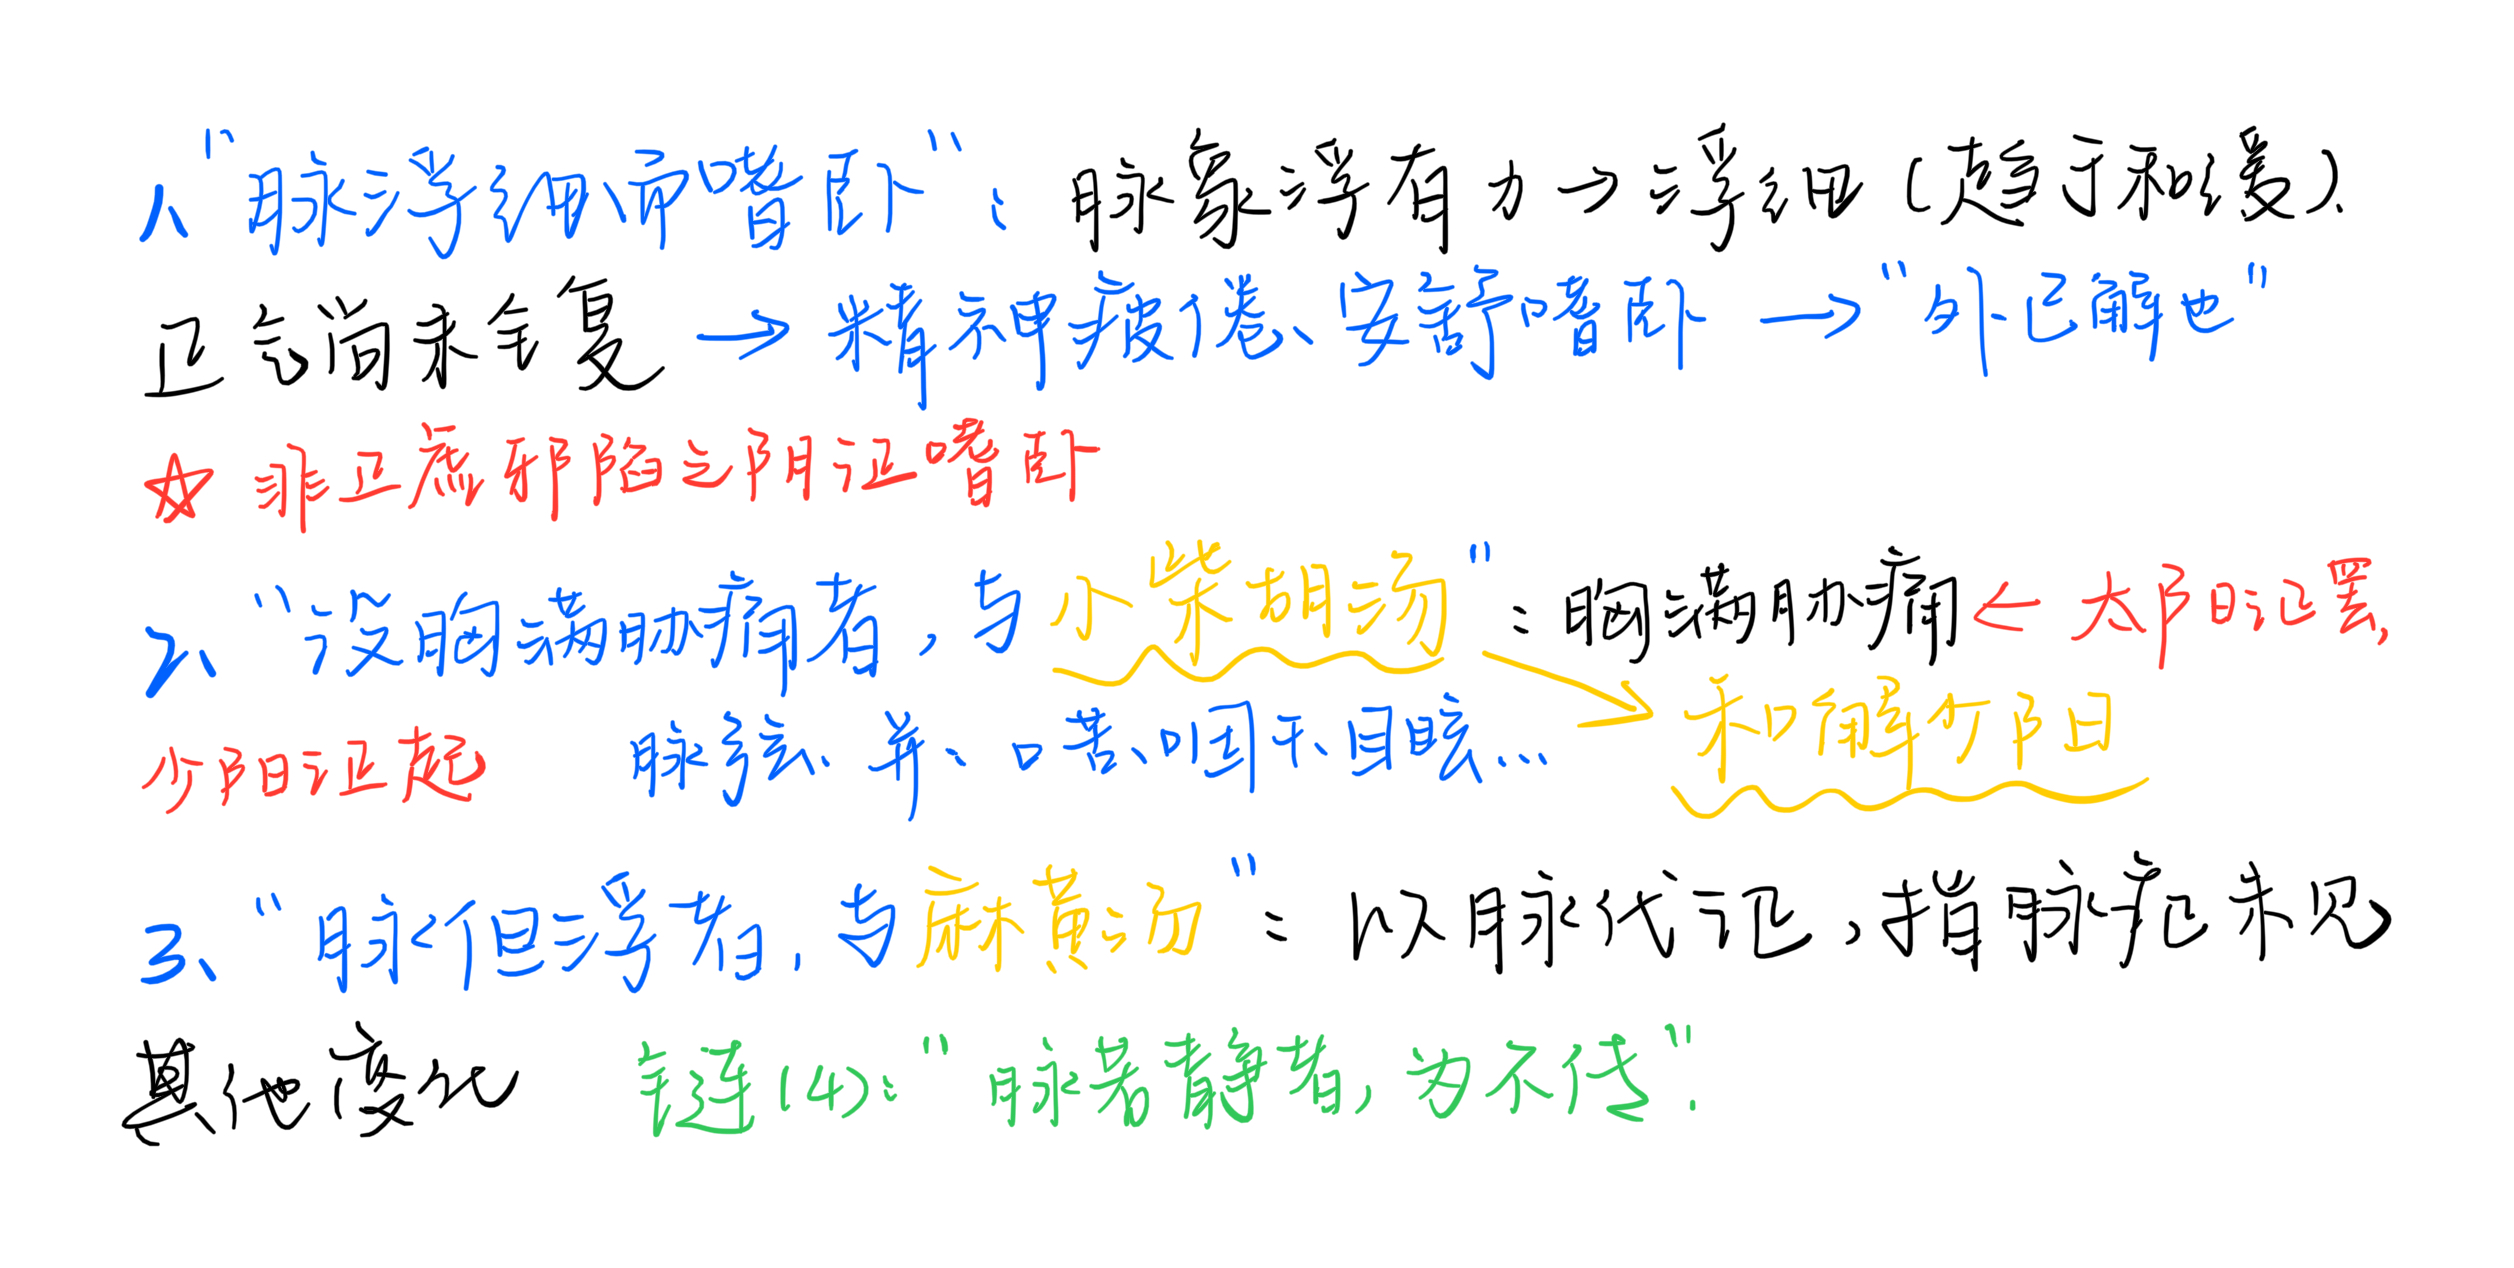 1、"脉浮细而嗜卧"：脉象浮有力→浮细（趋于和缓）、
正气尚未全复→精神疲倦、安静嗜卧→"外已解也"
☆ 非正虚邪陷之阴证嗜卧
2、"设胸满胁痛者，与小柴胡汤"：胸满胁痛←太阳证罢，
少阳证起 脉弦、苔、口苦、咽干、目眩… 和解少阳
3、"脉但浮者，与麻黄汤"：以脉代证，指脉症未见
其他变化 链(4)："脉若静者，为不传"．